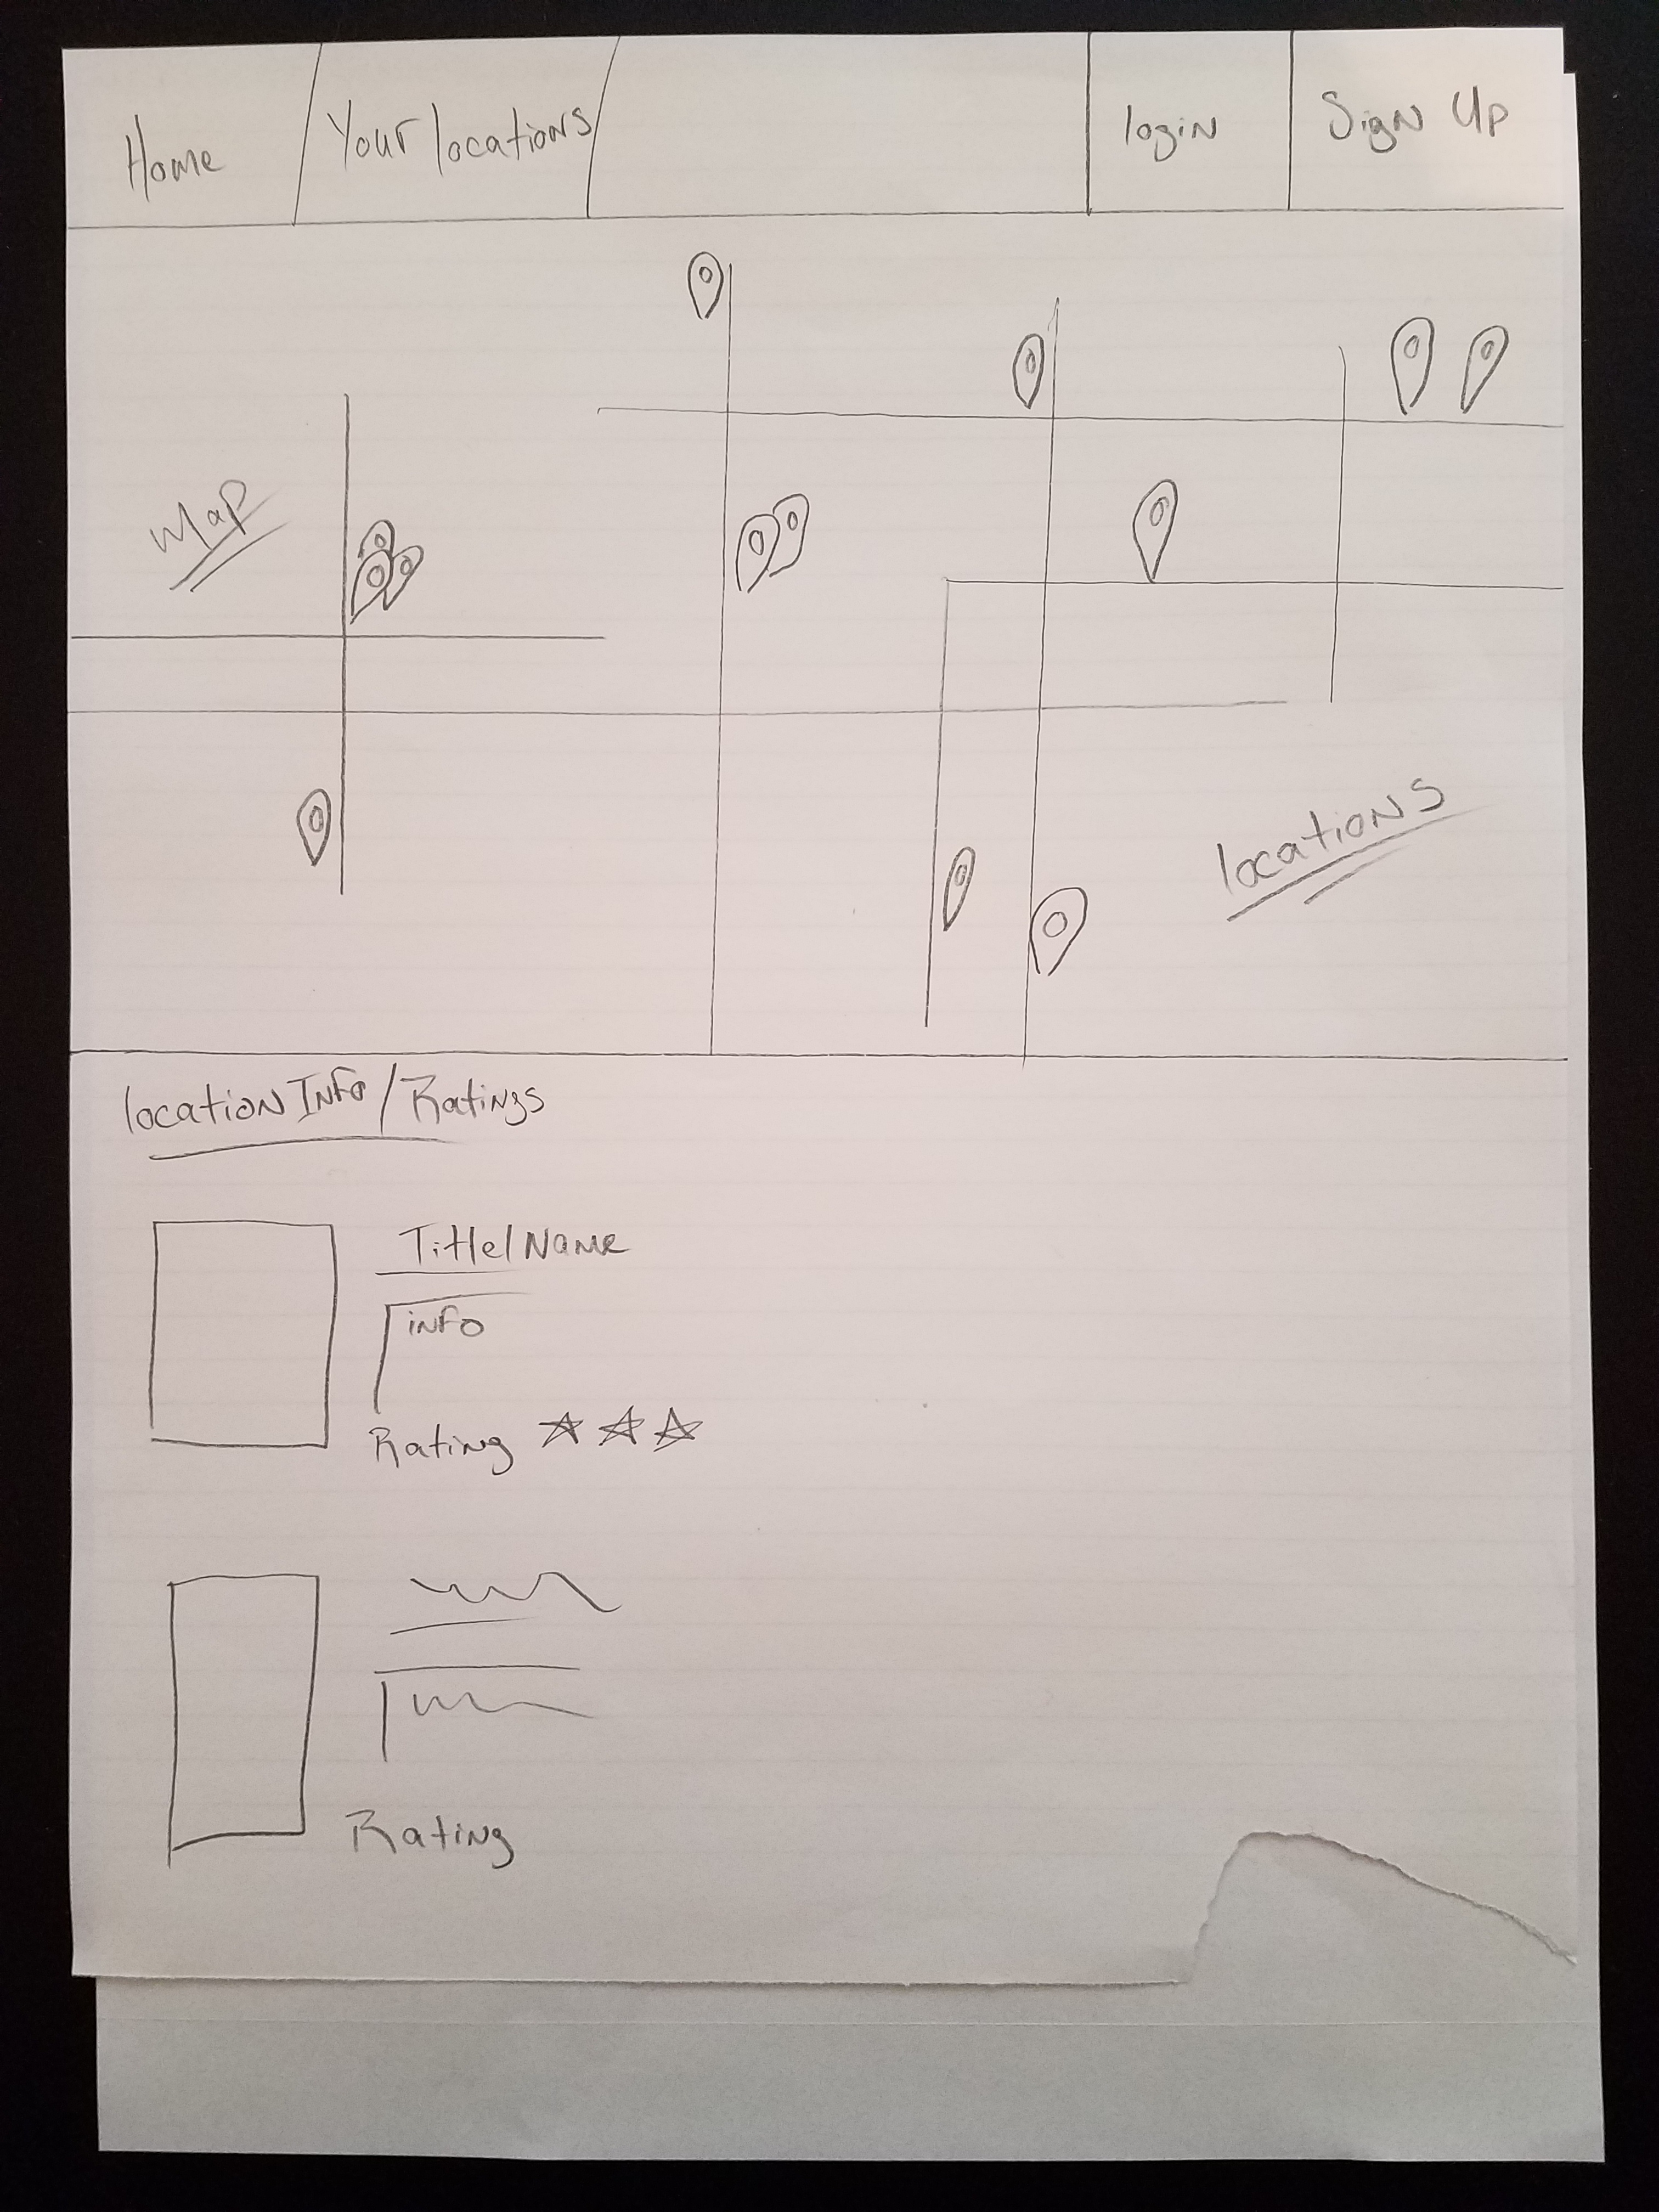 Home
Your locations
login
Sign Up
Map
locations
location Info/Ratings
Title/Name
info
Rating
Rating